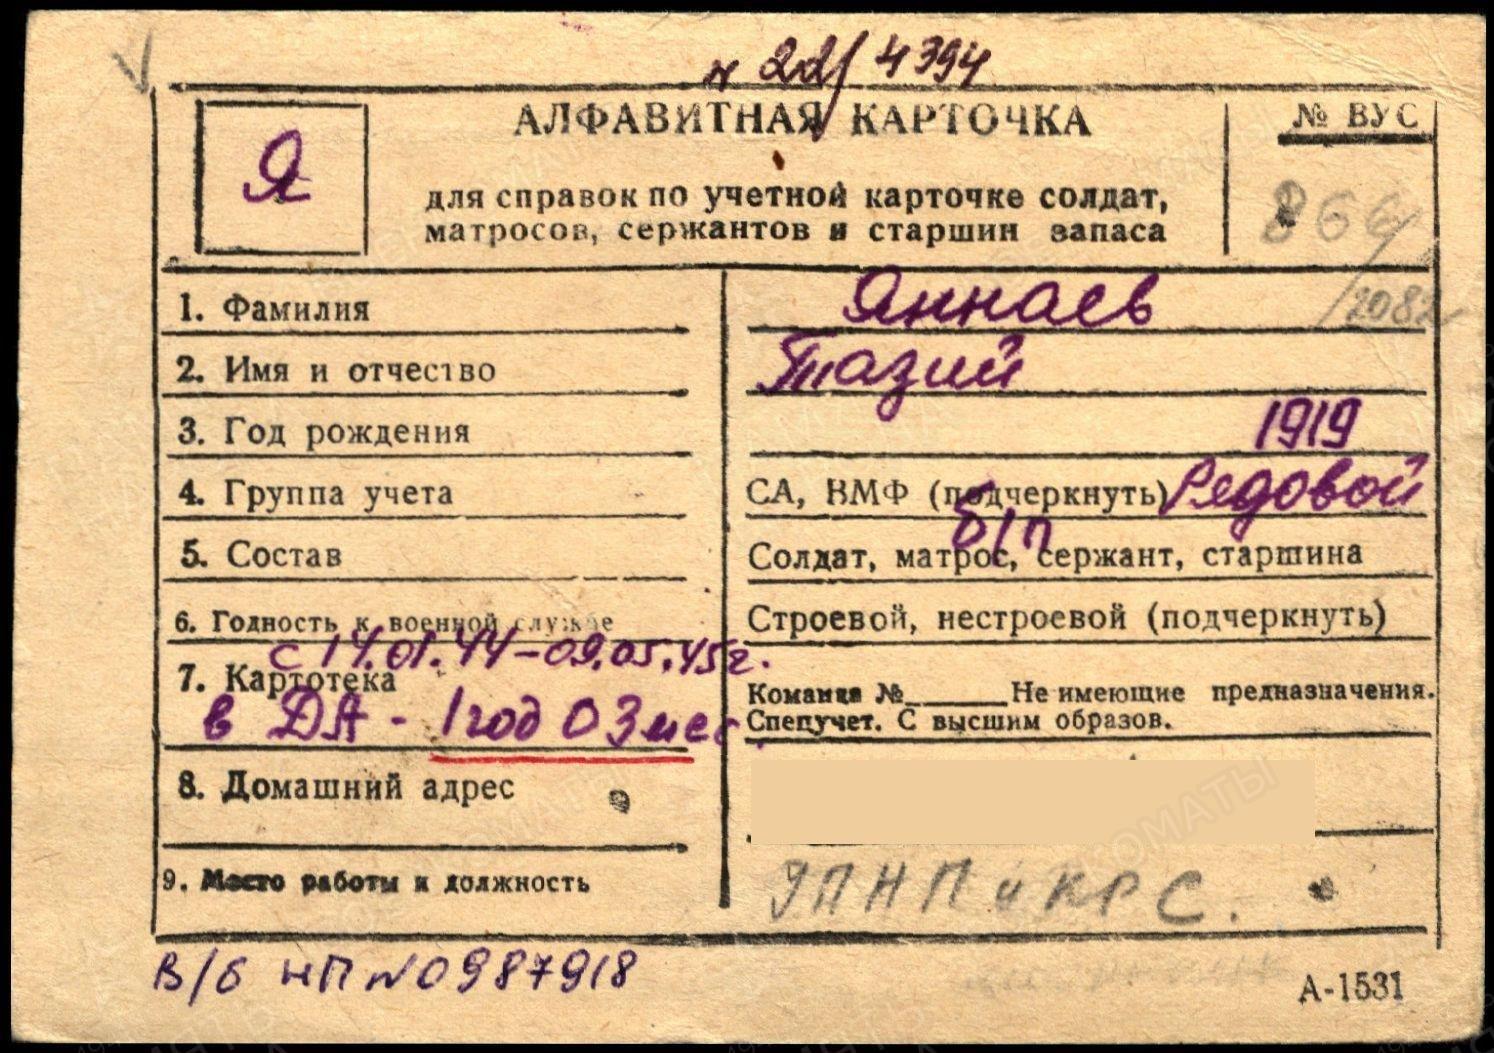 № 22/4394
АЛФАВИТНАЯ КАРТОЧКА
№ ВУС
Я
для справок по учетной карточке солдат,
матросов, сержантов и старшин запаса
866/
/2082
1. Фамилия
Яннаев
2. Имя и отчество
Тазий
3. Год рождения
1919
4. Группа учета
СА, ВМФ (подчеркнуть) Рядовой
б/п
5. Состав
Солдат, матрос, сержант, старшина
6. Годность к военной службе
Строевой, нестроевой (подчеркнуть)
с 14.01.44-09.05.45г.
7. Картотека
Команда №______Не имеющие предназначения.
в ДА - 1 год 03 мес.
Спецучет. С высшим образов.
8. Домашний адрес
9. Место работы и должность
УПНП и КРС.
В/б НП №0987918
А-1531